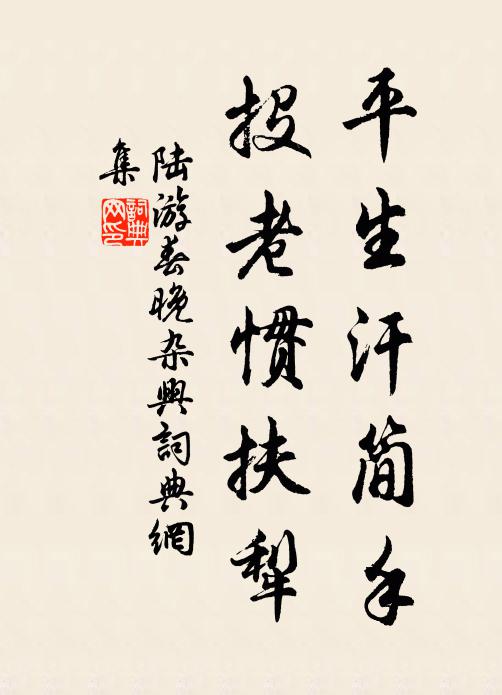 平生汗简手
投老惯扶犁
陆游春晚杂興詞典網
集
詞典
网印